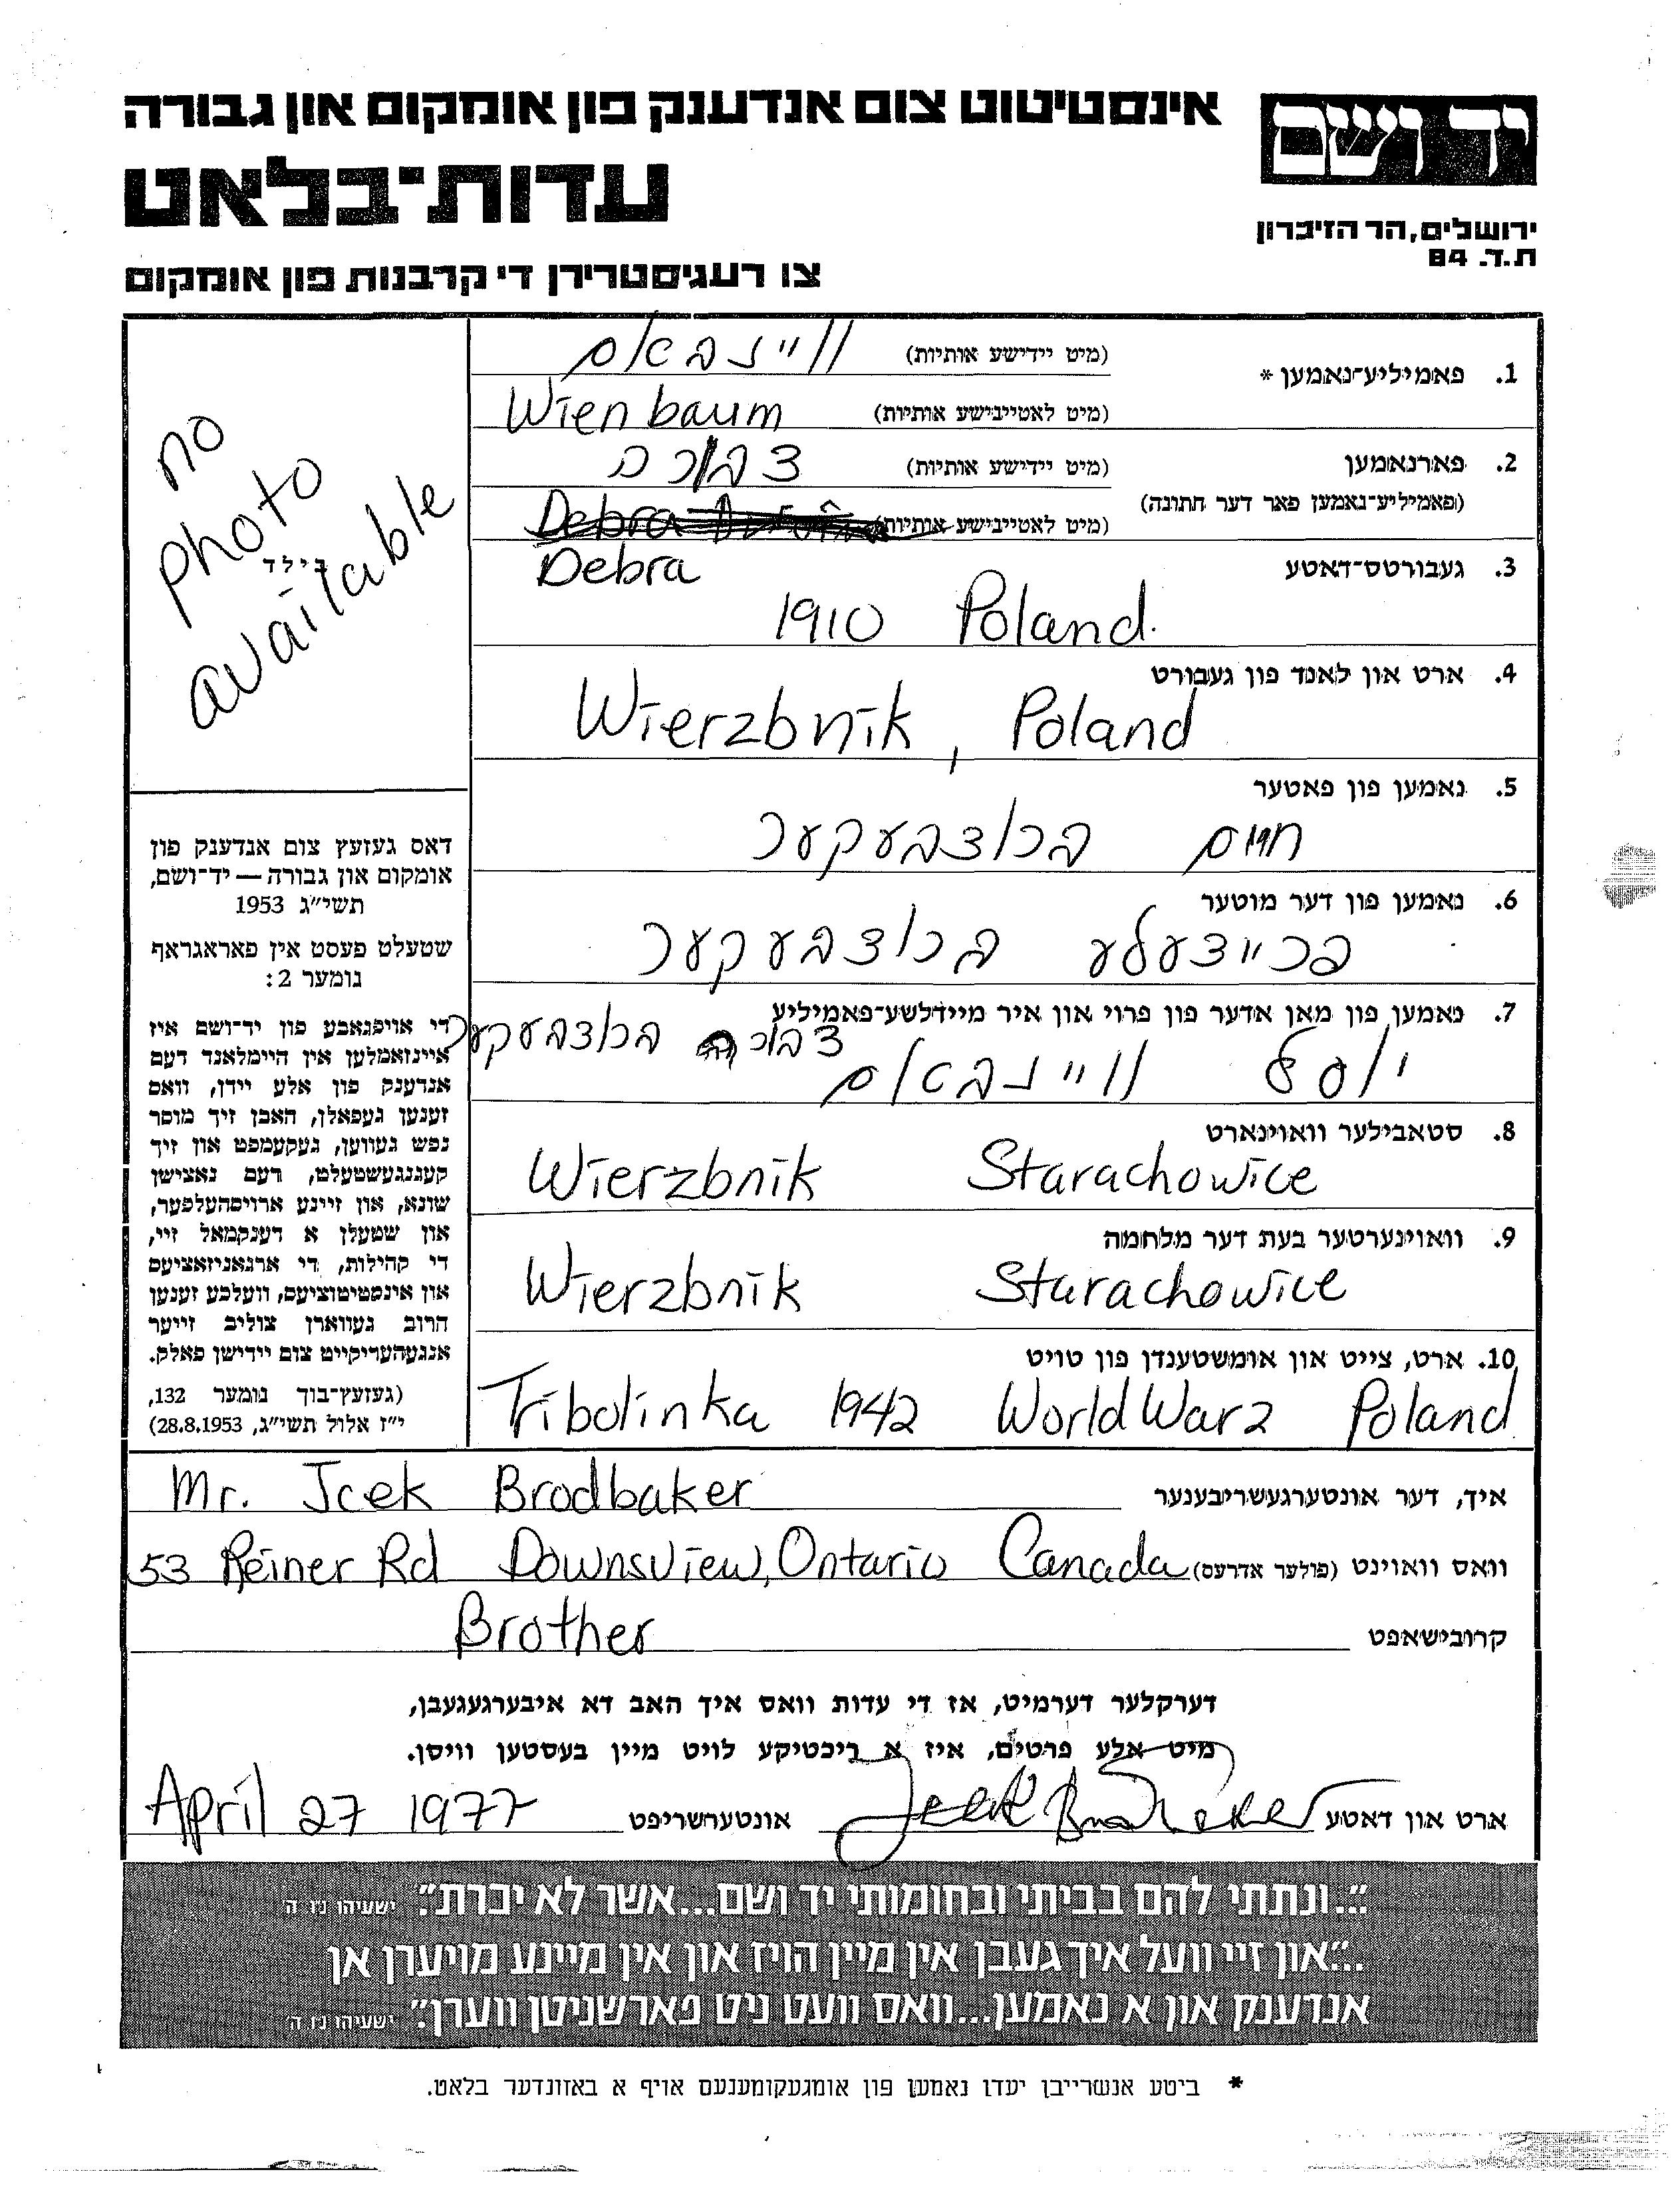 אינסטיטוט צום אנדענק פון אומקום און גבורה
יד ושם
עדות־בלאט
ירושלים, הר הזיכרון
ת.ד. 84
צו רעגיסטרירן די קרבנות פון אומקום
1. פאמיליע־נאמען *
(מיט יידישע אותיות) וויינבאם
(מיט לאטיינישע אותיות) Wienbaum
2. פארנאמען
(פאמיליע־נאמען פאר דער חתונה)
(מיט יידישע אותיות) דבורה
(מיט לאטיינישע אותיות) Debra
Debra
3. געבורטס־דאטע
1910 Poland.
4. ארט און לאנד פון געבורט
Wierzbnik, Poland
5. נאמען פון פאטער
חיים ברודבעקער
6. נאמען פון דער מוטער
פריידעלע ברודבעקער
7. נאמען פון מאן אדער פון פרוי און איר מיידלשע־פאמיליע
דבורה ברודבעקער
יוסל וויינבאם
8. סטאבילער וואוינארט
Wierzbnik Starachowice
9. וואוינערטער בעת דער מלחמה
Wierzbnik Starachowice
10. ארט, צייט און אומשטענדן פון טויט
Tribolinka 1942 World War 2 Poland
no
photo
בילד
available
דאס געזעץ צום אנדענק פון
אומקום און גבורה — יד־ושם,
תשי"ג 1953
שטעלט פעסט אין פאראגראף
נומער 2:
די אויפגאבע פון יד־ושם איז
איינזאמלען אין היימלאנד דעם
אנדענק פון אלע יידן, וואס
זענען געפאלן, האבן זיך מוסר
נפש געווען, געקעמפט און זיך
קעגנגעשטעלט, דעם נאצישן
שונא, און זיינע ארויסהעלפער,
און שטעלן א דענקמאל זיי,
די קהילות, די ארגאניזאציעס
און אינסטיטוציעס, וועלכע זענען
הרוב געווארן צוליב זייער
אנגעהעריקייט צום יידישן פאלק.
(געזעץ־בוך נומער 132,
י"ז אלול תשי"ג, 28.8.1953)
איך, דער אונטערגעשריבענער Mr. Icek Brodbaker
וואס וואוינט (פולער אדרעס) 53 Reiner Rd Downsview, Ontario Canada
קרובישאפט Brother
דערקלער דערמיט, אז די עדות וואס איך האב דא איבערגעגעבן,
מיט אלע פרטים, איז א ריכטיקע לויט מיין בעסטען וויסן.
ארט און דאטע Icek Brodbaker אונטערשריפט April 27 1977
"...ונתתי להם בביתי ובחומותי יד ושם...אשר לא יכרת". ישעיהו נו ה
"...און זיי וועל איך געבן אין מיין הויז און אין מיינע מויערן אן
אנדענק און א נאמען...וואס וועט ניט פארשניטן ווערן". ישעיהו נו ה
* ביטע אנשרייבן יעדן נאמען פון אומגעקומענעם אויף א באזונדער בלאט.